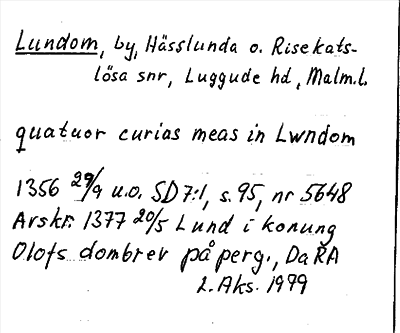 Lundom, by, Hässlunda o. Risekats-
lösa snr, Luggude hd, Malm.l.
quatuor curias meas in Lwndom
1356 29/9 u.o. SD 7:1, s. 95, nr 5648
Avskr. 1377 20/5 Lund i konung
Olofs dombrev på perg., DaRA
2. Aks. 1979